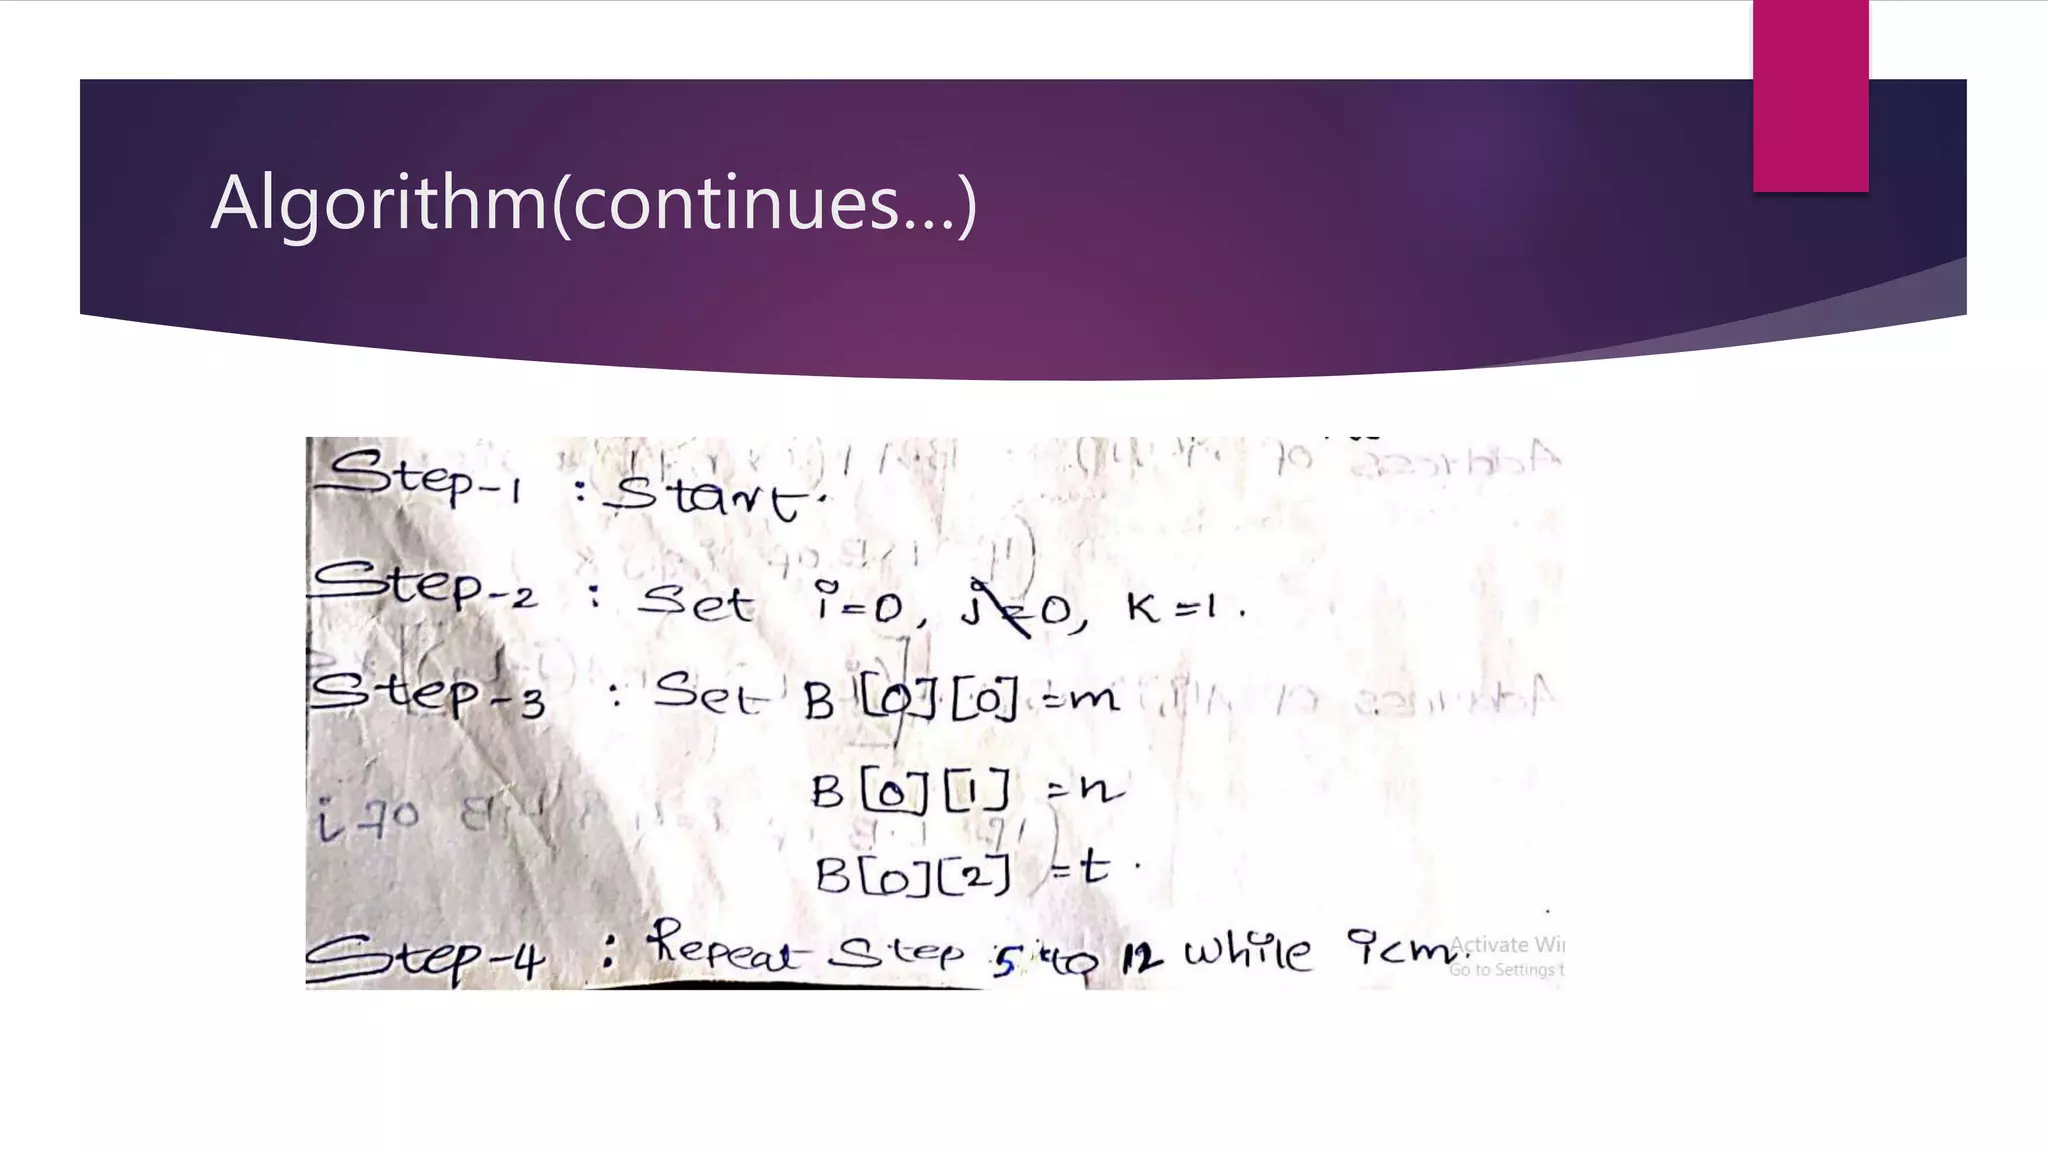 Algorithm(continues...)
Step-1 : Start.
Step-2 : Set i=0, j=0, K=1.
Step-3 : Set B[0][0]=m
B[0][1]=n
B[0][2]=t.
Step-4 : Repeat Step 5 to 12 while i<m.
Activate Wi
Go to Settings t